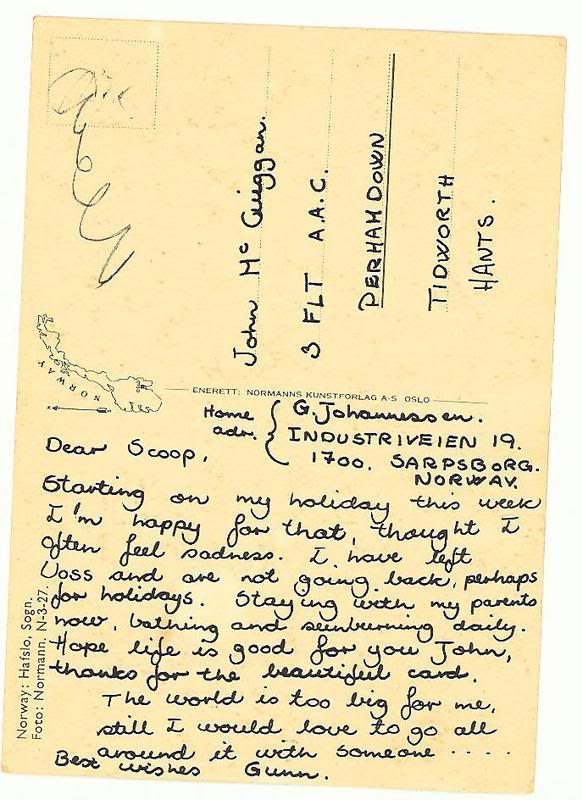 John Mc Guiggan.
3 FLT A.A.C.
PERHAM DOWN
TIDWORTH
HANTS.
NORWAY
ENERETT: NORMANNS KUNSTFORLAG A-S OSLO
Home adr. { G. Johannessen.
INDUSTRIVEIEN 19.
1700. SARPSBORG.
NORWAY.
Dear Scoop,
Starting on my holiday this week
I'm happy for that, thought I
often feel sadness. I have left
Voss and are not going back, perhaps
for holidays. Staying with my parents
now, bathing and sunburning daily.
Hope life is good for you John,
thanks for the beautiful card.
The world is too big for me,
still I would love to go all
around it with someone ....
Best wishes Gunn.
Norway: Hafslo, Sogn.
Foto: Normann. N-3-27.